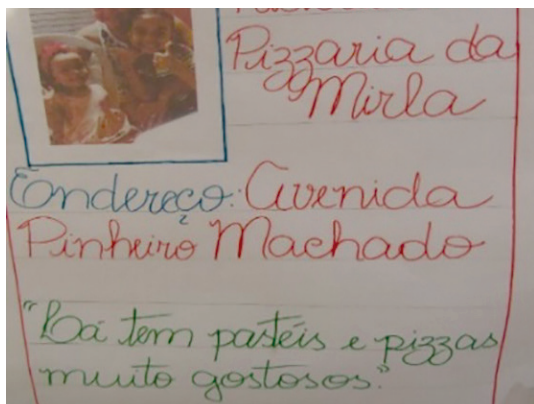 Pizzaria da
Mirla
Endereço: Avenida
Pinheiro Machado
"Lá tem pastéis e pizzas
muito gostosos."